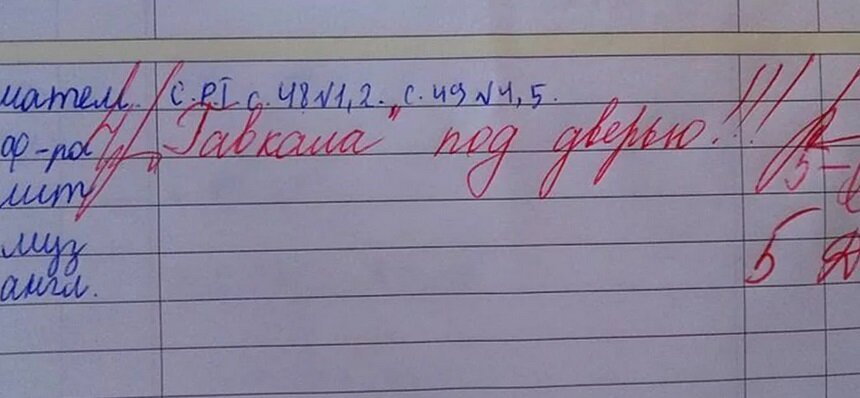 матем. с. РТ с. 48 №1, 2. с. 49 №4, 5.
ф-ра "Гавкала" под дверью!!!
лит 5-
муз 5
англ.